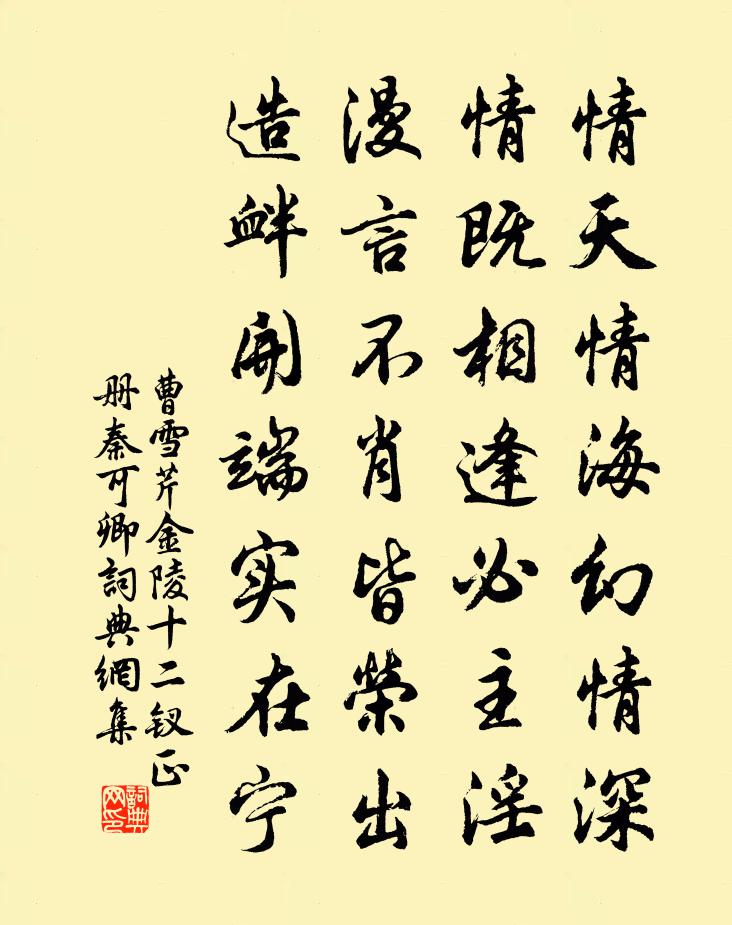 情天情海幻情深
情既相逢必主淫
漫言不肖皆榮出
造衅開端实在宁
曹雪芹金陵十二钗正
册秦可卿詞典網集
詞典
网印